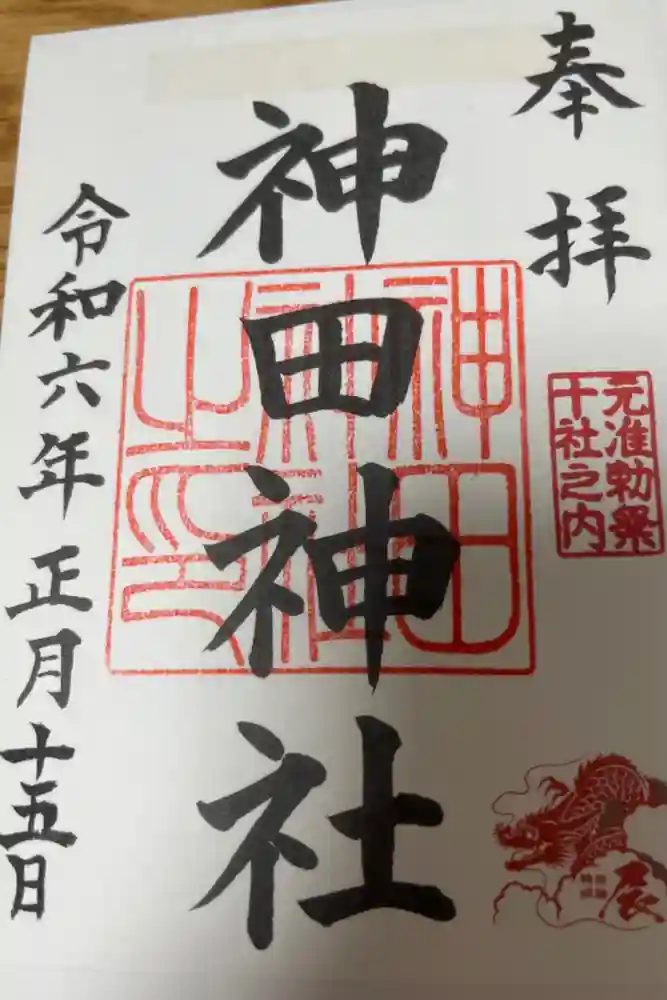 奉拝
元准勅祭
十社之内
辰
神田神社
神田神社之印
令和六年正月十五日